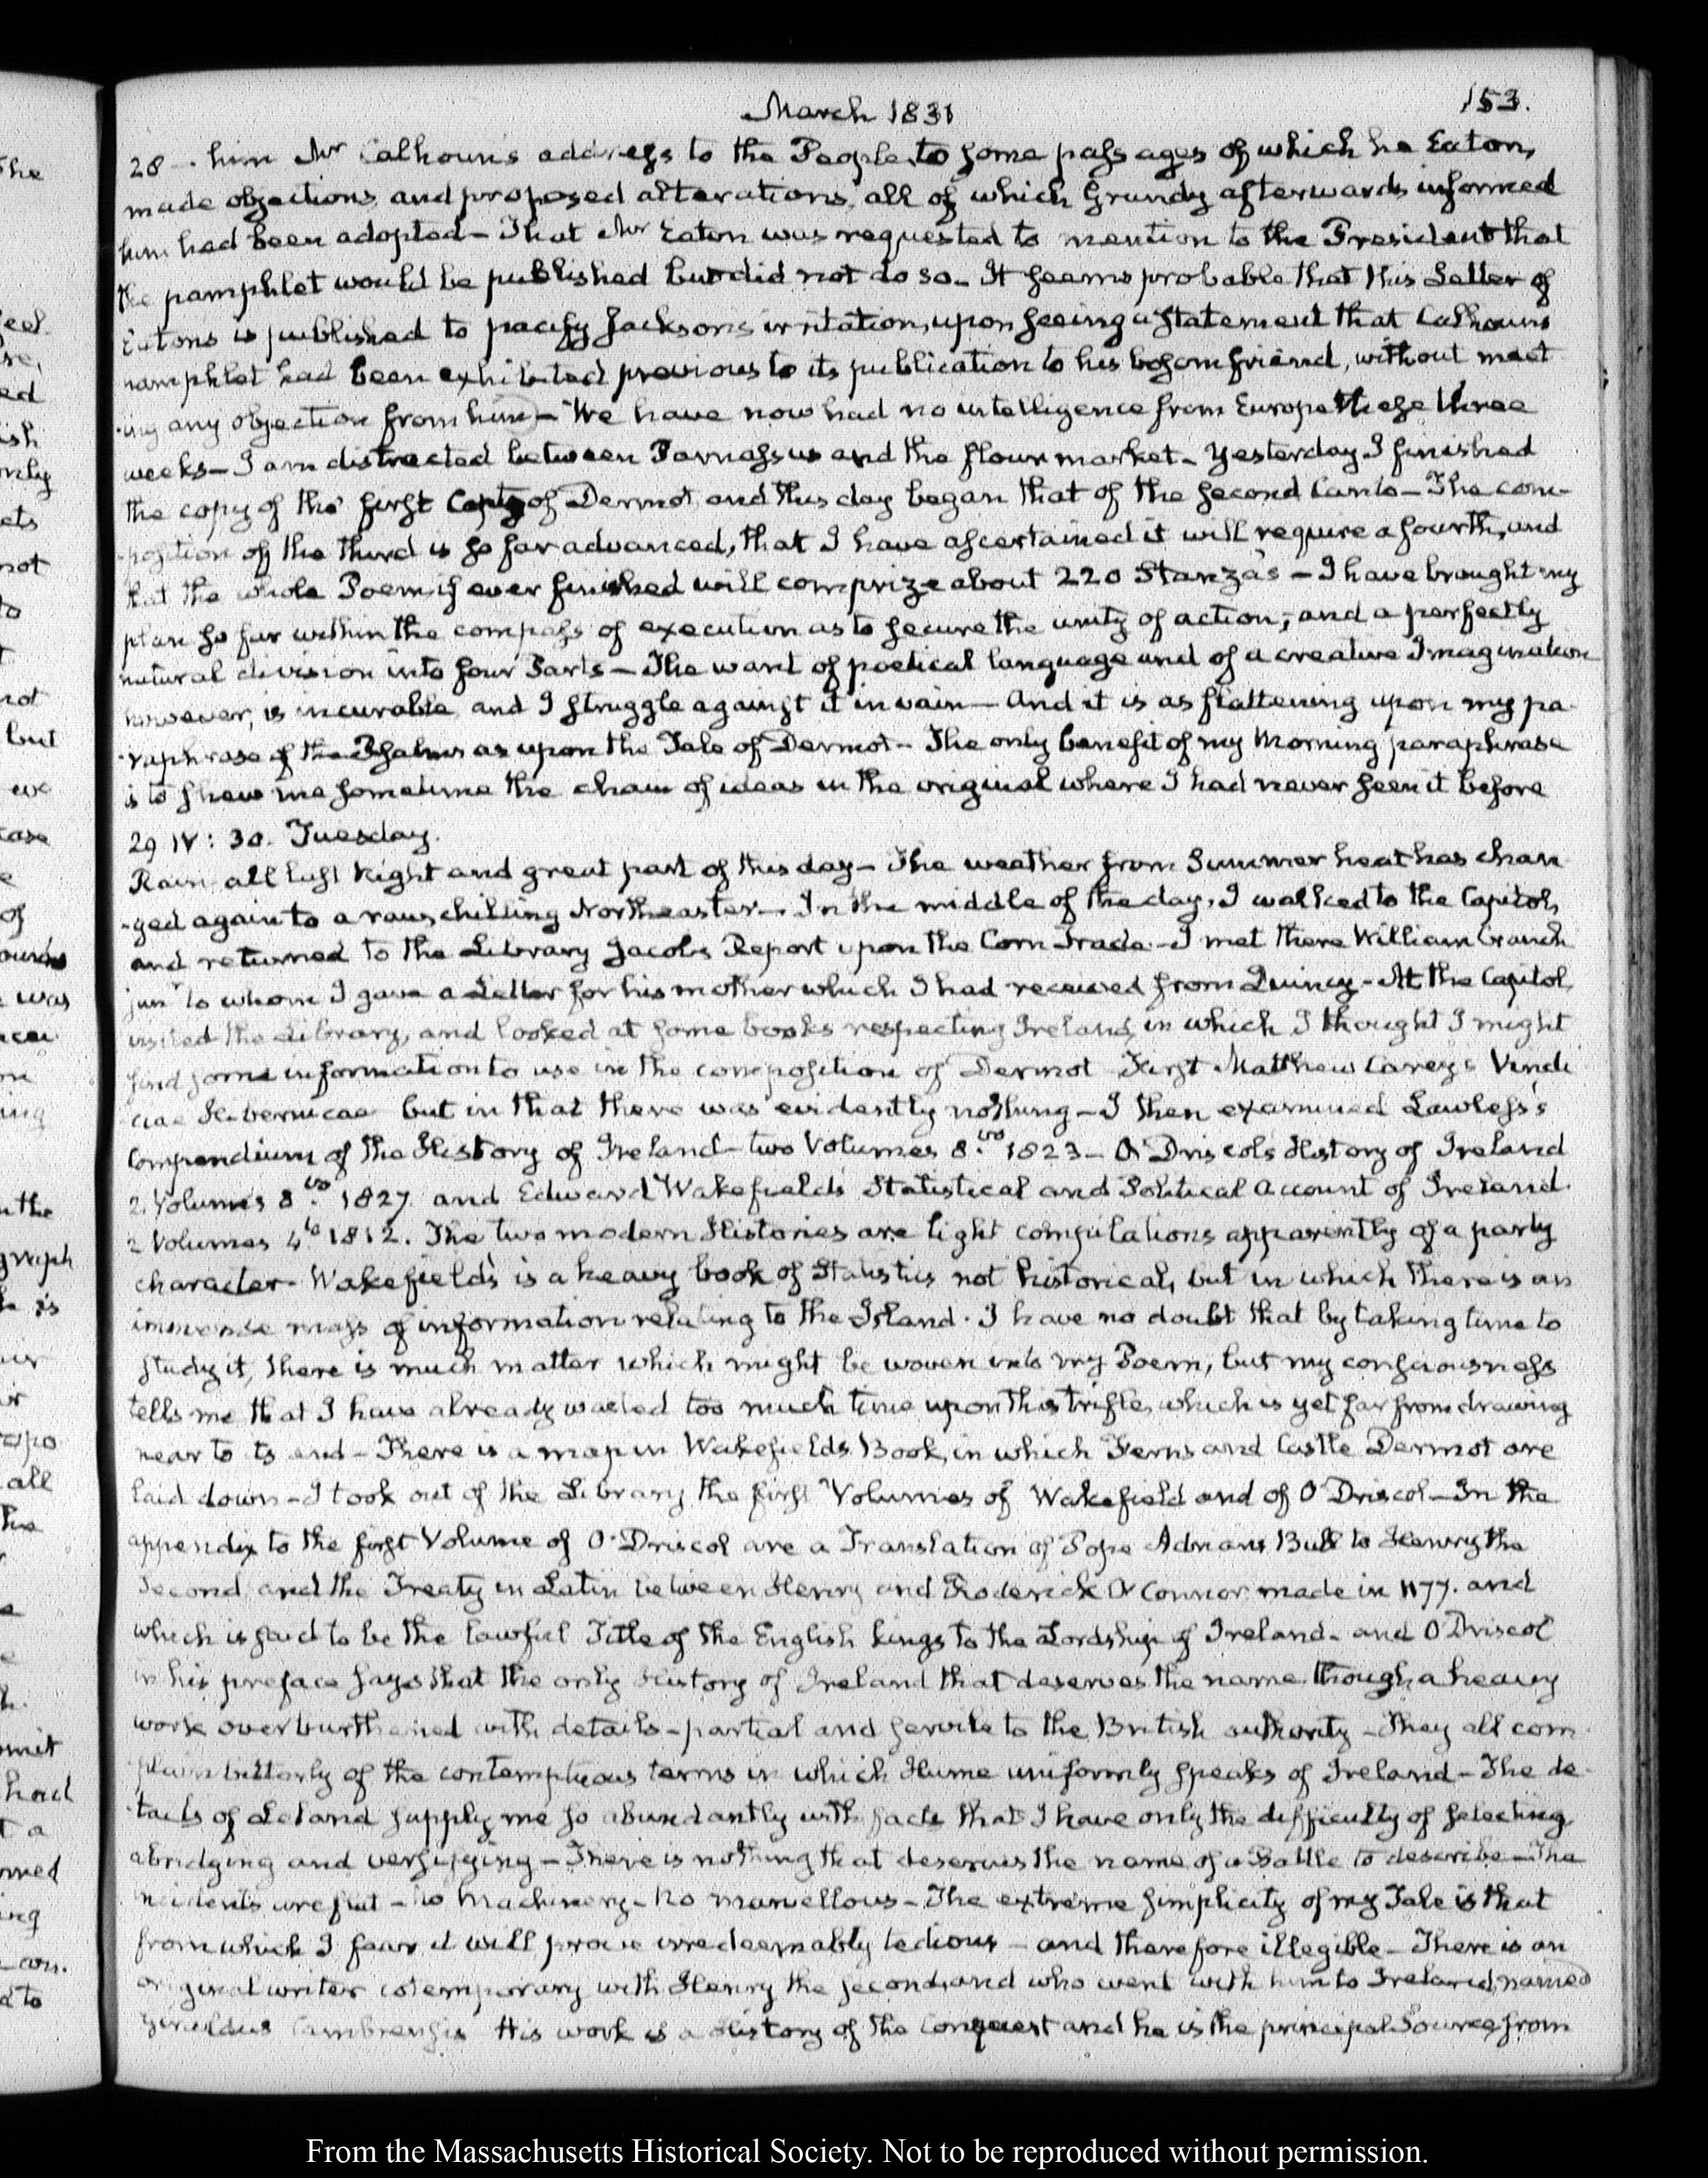 March 1831
153.
28 — him Mr Calhoun's address to the People, to some passages of which he Eaton,
made objections and proposed alterations, all of which Grundy afterwards informed
him had been adopted — That Mr Eaton was requested to mention to the President that
the pamphlet would be published but did not do so — It seems probable that this Letter of
Eatons is published to pacify Jacksons irritation, upon seeing a statement that Calhouns
pamphlet had been exhibited previous to its publication to his bosom friend, without meet
-ing any objection from him — We have now had no intelligence from Europe these three
weeks — I am distracted between Parnassus and the flour market — Yesterday I finished
the copy of the first Canto of Dermot, and this day began that of the second Canto — The com-
-position of the third is so far advanced, that I have ascertained it will require a fourth, and
that the whole Poem if ever finished will comprize about 220 Stanza's — I have brought my
plan so far within the compass of execution as to secure the unity of action, and a perfectly
natural division into four Parts — The want of poetical language and of a creative Imagination
however, is incurable, and I struggle against it in vain — And it is as flattening upon my pa-
-raphrase of the Psalms as upon the Tale of Dermot — The only benefit of my Morning paraphrase
is to shew me sometime the chain of ideas in the original where I had never seen it before
29 IV: 30. Tuesday.
Rain all last Night and great part of this day — The weather from Summer heat has chan
-ged again to a raw chilling Northeaster — In the middle of the day, I walked to the Capitol,
and returned to the Library Jacob's Report upon the Corn Trade — I met there William Cranch
junr to whom I gave a Letter for his mother which I had received from Quincy — At the Capitol,
visited the Library, and looked at some books respecting Ireland, in which I thought I might
find some information to use in the composition of Dermot First Matthew Carey's Vindi
ciae Hibernicae but in that there was evidently nothing — I then examined Lawless's
Compendium of the History of Ireland — two Volumes 8.vo 1823 — O'Driscols History of Ireland
2. Volumes 8.vo 1827. and Edward Wakefields Statistical and Political Account of Ireland.
2 Volumes 4to 1812. The two modern Histories are light compilations apparently of a party
character — Wakefields is a heavy book of Statistics not historical, but in which there is an
immense mass of information relating to the Island. I have no doubt that by taking time to
study it, there is much matter which might be woven into my Poem, but my consciousness
tells me that I have already wasted too much time upon this trifle, which is yet far from drawing
near to its end — There is a map in Wakefields Book, in which Ferns and Castle Dermot are
laid down — I took out of the Library the first Volumes of Wakefield and of O'Driscol — In the
appendix to the first Volume of O'Driscol are a Translation of Pope Adrians Bull to Henry the
Second, and the Treaty in Latin between Henry and Roderick O'Connor made in 1177. and
which is said to be the lawful Title of the English kings to the Lordship of Ireland — and O'Driscol
in his preface says that the only History of Ireland that deserves the name though a heavy
work overburthened with details — partial and servile to the British authority — They all com-
-plain bitterly of the contemptuous terms in which Hume uniformly speaks of Ireland — The de-
-tails of Leland supply me so abundantly with facts that I have only the difficulty of selecting
abridging and versifying — There is nothing that deserves the name of a Battle to describe — The
incidents are flat — No Machinery — No marvellous — The extreme simplicity of my Tale is that
from which I fear it will prove irredeemably tedious — and therefore illegible — There is an
original writer cotemporary with Henry the second, and who went with him to Ireland, named
Giraldus Cambrensis His work is a History of the Conquest and he is the principal Source from
From the Massachusetts Historical Society. Not to be reproduced without permission.